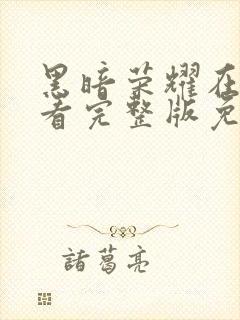 黑暗荣耀在
看完整版免
諸葛亮